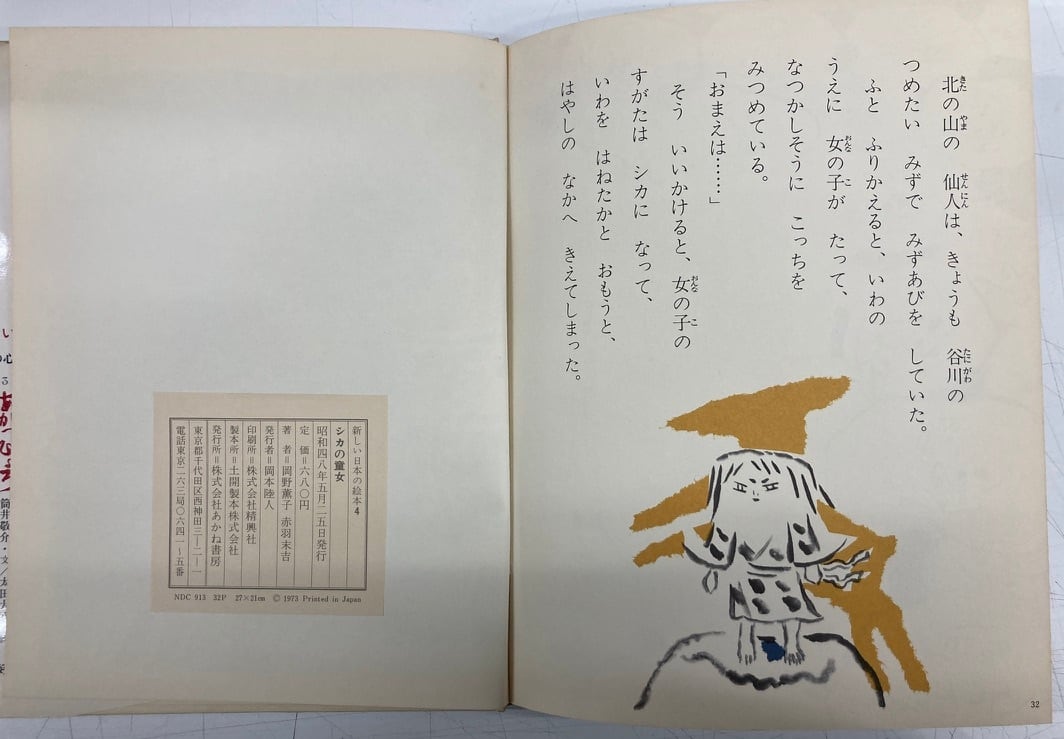 北の山の　仙人は、きょうも　谷川の
つめたい　みずで　みずあびを　していた。
ふと　ふりかえると、いわの
うえに　女の子が　たって、
なつかしそうに　こっちを
みつめている。
「おまえは……」
そう　いいかけると、女の子の
すがたは　シカに　なって、
いわを　はねたかと　おもうと、
はやしの　なかへ　きえてしまった。
32
新しい日本の絵本4
シカの童女
昭和四八年五月二五日発行
定　価＝六八〇円
著　者＝岡野薫子　赤羽末吉
発行者＝岡本陸人
印刷所＝株式会社精興社
製本所＝土開製本株式会社
発行所＝株式会社あかね書房
東京都千代田区西神田三―二―一
電話東京二六三局〇六四一～五番
NDC 913　32P　27×21cm　© 1973 Printed in Japan
筒井敬介・文